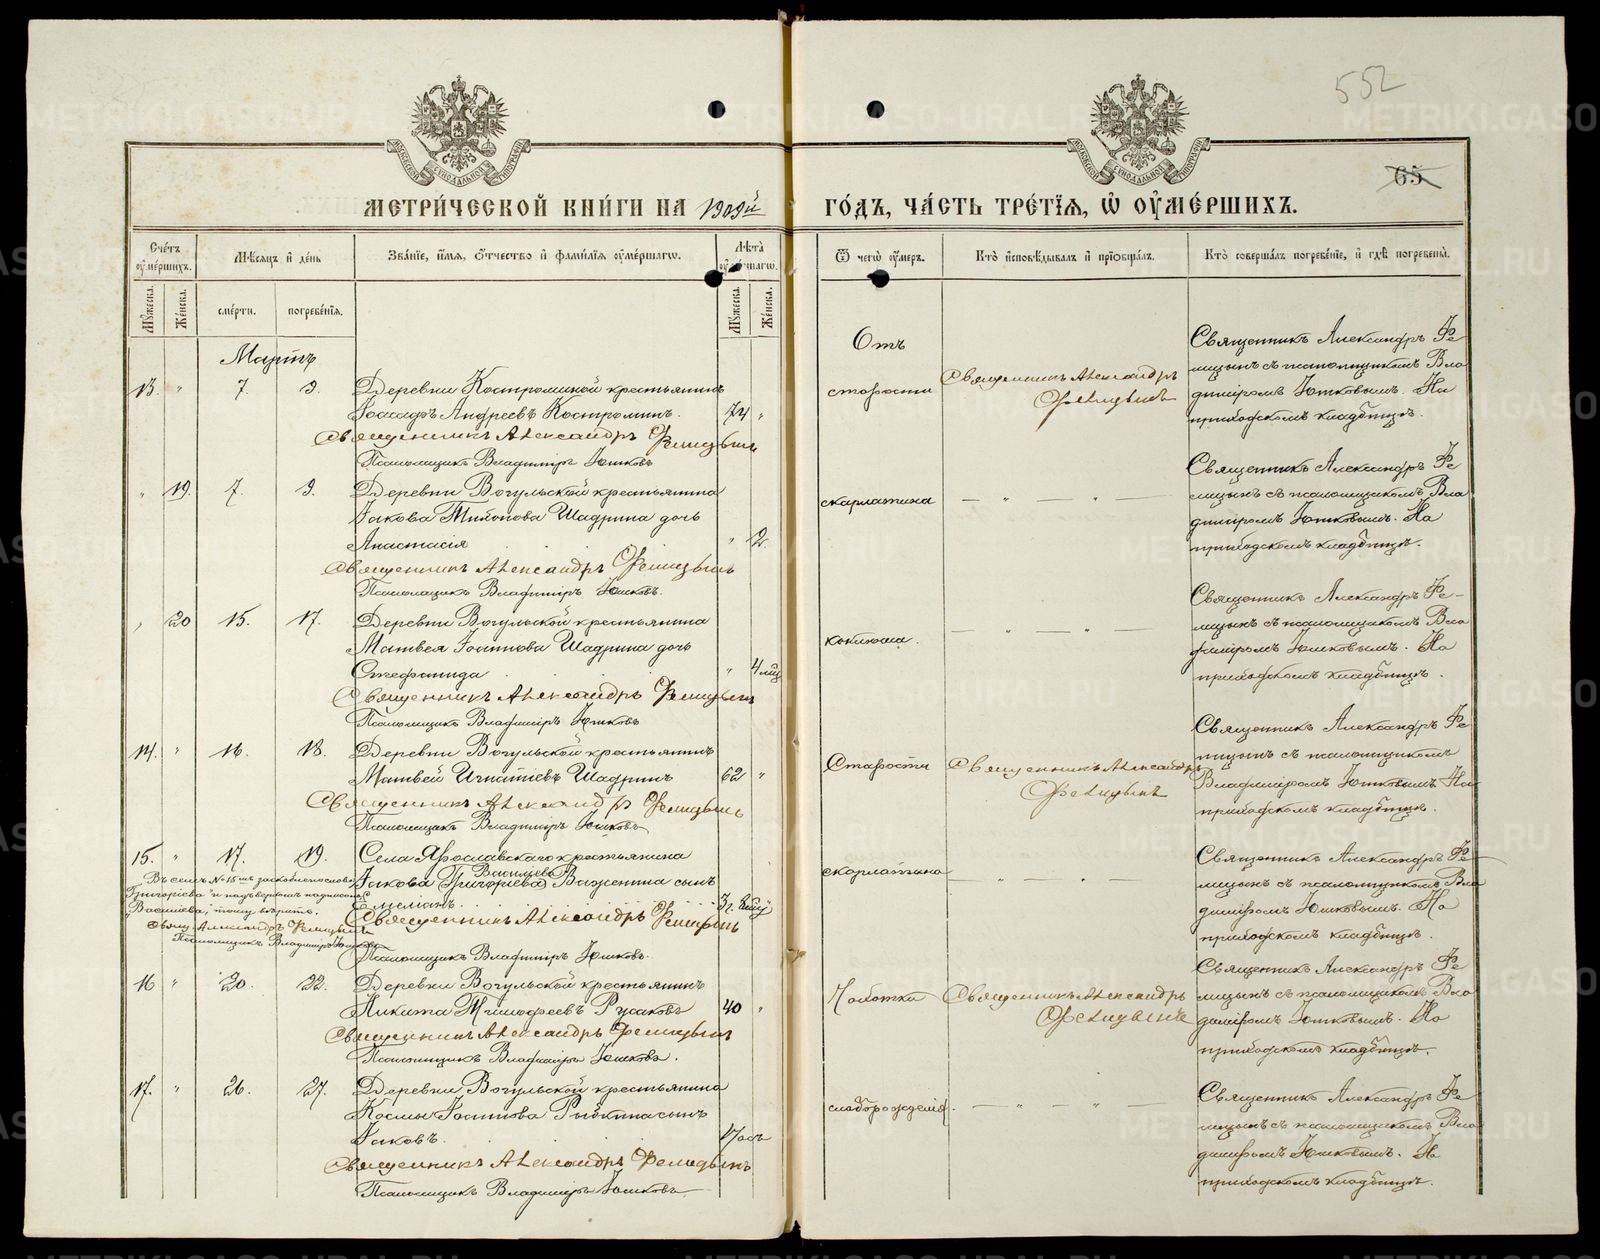 552
65
МЕТРИ́ЧЕСКОЙ КНИ́ГИ НА 1909й ГО́ДЪ, ЧА́СТЬ ТРЕ́ТЇѦ, Ѡ ОУМЕ́РШИХЪ.
Сче́тъ оуме́ршихъ.
Мѣ́сяцъ и день
Зва́нїе, и́мѧ, ѻ́тчество и фами́лїѧ оуме́ршагѡ.
Лѣ́та оуме́ршагѡ.
Ѿ чегѡ̀ оу́меръ.
Кто̀ и҆сповѣ́дывалъ и прїѡбща́лъ.
Кто̀ соверша́лъ погребе́нїе, и гдѣ̀ погребены̀.
Мꙋ́жеска.
Же́нска.
сме́рти.
погребе́нїѧ.
Мꙋ́жеска.
Же́нска.
Мартъ
13. " 7. 9. Деревни Костроминой крестьянинъ
Андреевъ Костроминъ. 74 "
Священникъ Александръ Фелицынъ
Псаломщикъ Владимiръ Юшковъ
Отъ
старости
Священникъ Александръ
Фелицынъ
Священникъ Александръ Фе
лицынъ съ псаломщикомъ Вла
димiромъ Юшковымъ. На
приходскомъ кладбищѣ.
" 19. 7. 9. Деревни Вогульской крестьянина
Iакова Шадрина дочь
Анастасiя " 2.
Священникъ Александръ Фелицынъ
Псаломщикъ Владимiръ Юшковъ.
скарлатина
— " — " —
Священникъ Александръ Фе
лицынъ съ псаломщикомъ Вла
димiромъ Юшковымъ. На
приходскомъ кладбищѣ.
" 20 15. 17. Деревни Вогульской крестьянина
Матвея Шадрина дочь
Стефанида " 4 мѣс
Священникъ Александръ Фелицынъ
Псаломщикъ Владимiръ Юшковъ
коклюша.
— " — " —
Священникъ Александръ Фе-
лицынъ съ псаломщикомъ Вла
димiромъ Юшковымъ. На
приходскомъ кладбищѣ.
14. " 16. 18. Деревни Вогульской крестьянинъ
Матвей Игнатiевъ Шадринъ 62 "
Священникъ Александръ Фелицынъ
Псаломщикъ Владимiръ Юшковъ
Старости
Священникъ Александръ
Фелицынъ
Священникъ Александръ Фе
лицынъ съ псаломщикомъ
Владимiромъ Юшковымъ. На
приходскомъ кладбищѣ.
15. " 17. 19. Села Ярославскаго крестьянина
Васильева
Iакова Григорiева Важенина сынъ
Емелианъ 3 г.
Священникъ Александръ Фелицынъ
Псаломщикъ Владимiръ Юшковъ.
Въ семъ № 15мъ заскоблено слово
"Григорiева" и надъ верхомъ надписано
"Васильева", тому вѣрить.
Свящ. Александръ Фелицынъ
Псаломщикъ Владимiръ Юшковъ
скарлатина
— " — " —
Священникъ Александръ Фе
лицынъ съ псаломщикомъ Вла
димiромъ Юшковымъ. На
приходскомъ кладбищѣ.
16 " 20. 22. Деревни Вогульской крестьянинъ
Никита Тимофеевъ Русаковъ 40 "
Священникъ Александръ Фелицынъ
Псаломщикъ Владимiръ Юшковъ.
Чахотки
Священникъ Александръ
Фелицынъ
Священникъ Александръ Фе
лицынъ съ псаломщикомъ Вла
димiромъ Юшковымъ. На
приходскомъ кладбищѣ.
17. " 26. 27. Деревни Вогульской крестьянина
Космы сынъ
Iаковъ.
Священникъ Александръ Фелицынъ
Псаломщикъ Владимiръ Юшковъ
слаборожденiя.
— " — " —
Священникъ Александръ Фе
лицынъ съ псаломщикомъ Вла
димiромъ Юшковымъ. На
приходскомъ кладбищѣ.
METRIKI.GASO-URAL.RU